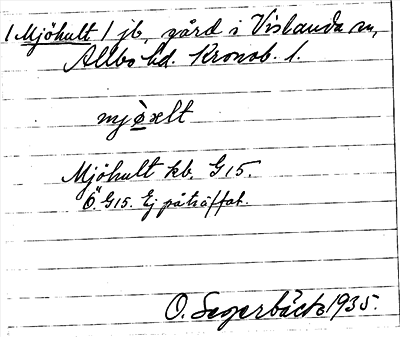 /Mjöhult/ jb, gård i Vislanda sn,
Allbo hd. Kronob. l.
mjø̀xlt
Mjöhult kb, G15.
Ö. G15. Ej påträffat.
O. Segerbäck 1935.